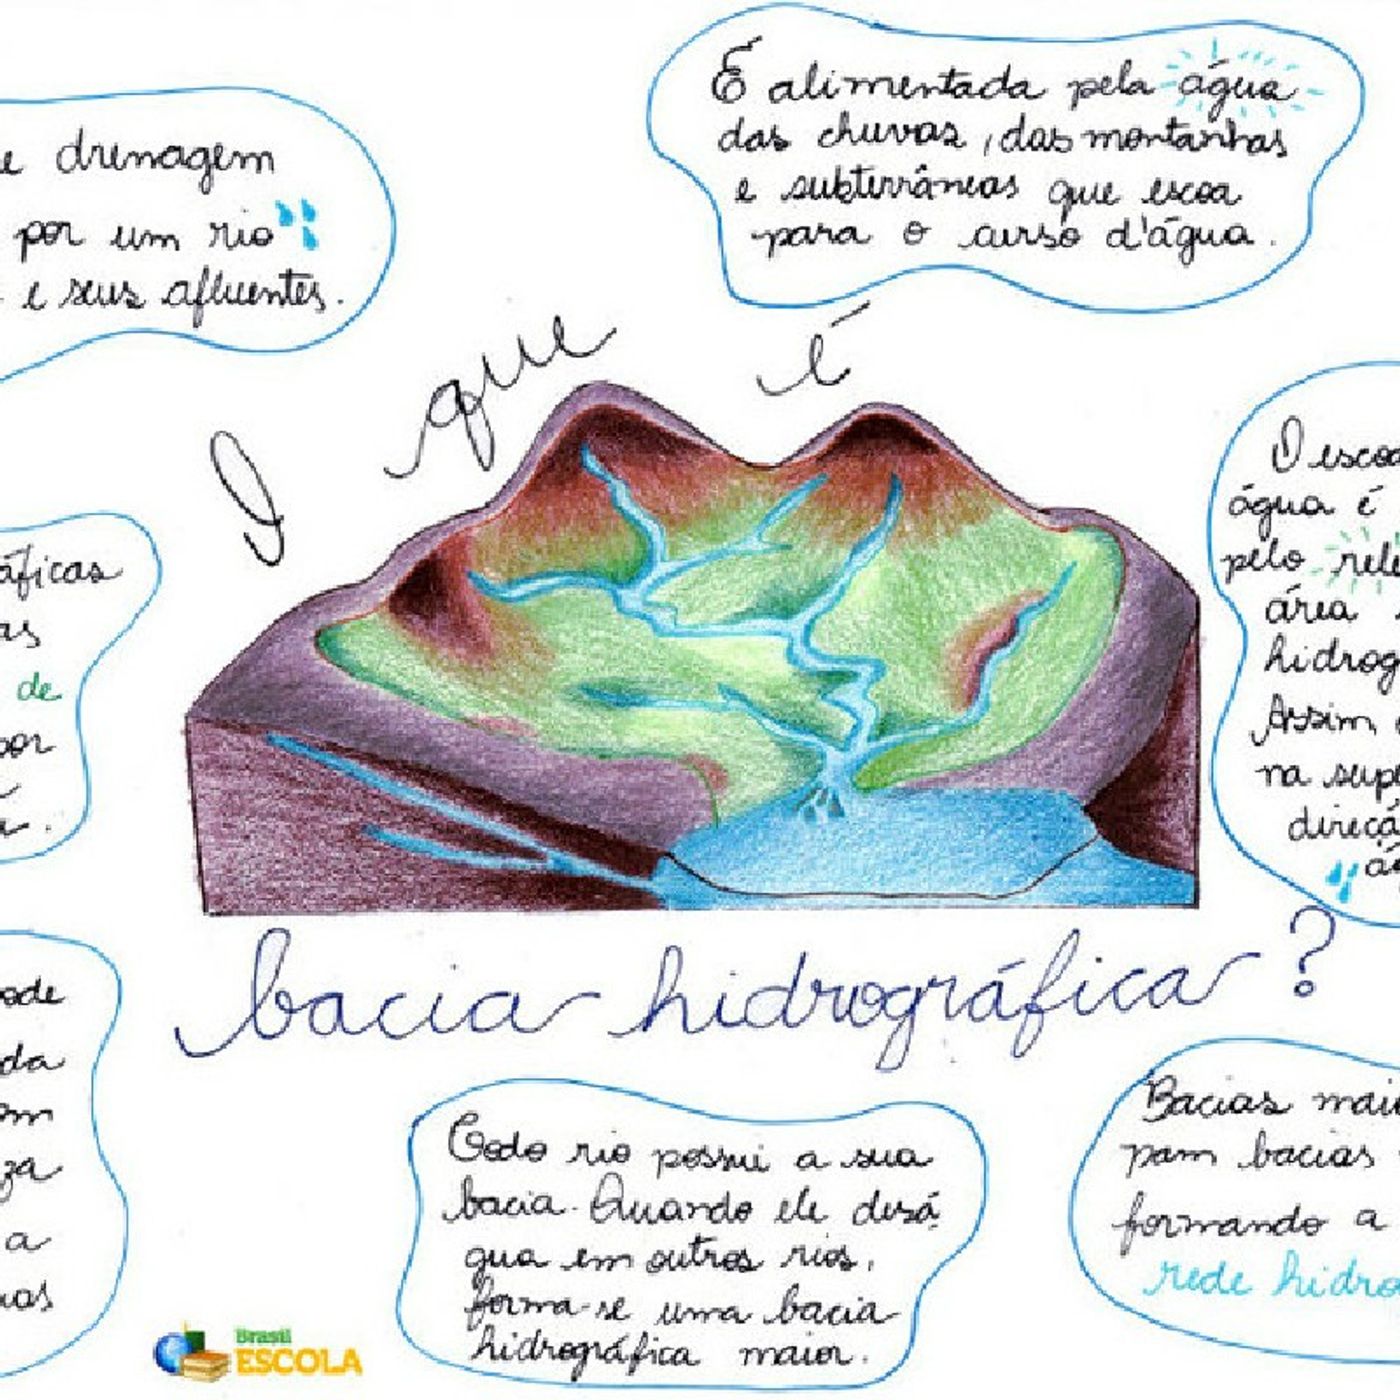 e drenagem
por um rio
e seus afluentes.
É alimentada pela água
das chuvas, das montanhas
e subterrâneas que escoa
para o curso d'água.
O que é
bacia hidrográfica?
áficas
as
de
por
O escoa
água é
pelo rele
área
hidrog
Assim
na supe
direçã
ode
da
om
za
a
uas
Todo rio possui a sua
bacia. Quando ele desá
gua em outros rios,
forma-se uma bacia
hidrográfica maior.
Bacias maio
pam bacias
formando a
rede hidro
Brasil
ESCOLA